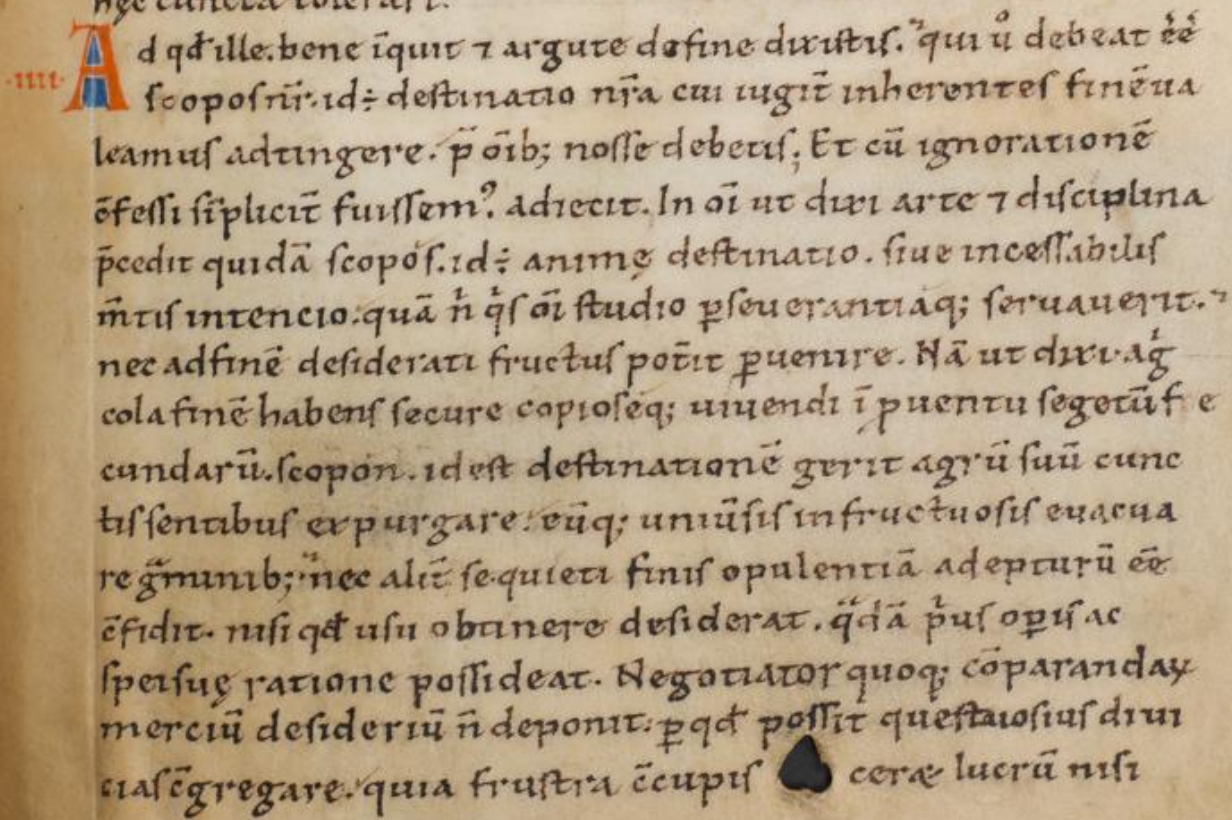 nec cuncta tolerari.
·IIII· Ad qđ ille. bene īquit ⁊ argute de fine dixistis. qui ů debeat ēē
scopos nr̄. id÷ destinatio nr̄a cui iugit̄ inherentes finē ua
leamus adtingere. p̄ oīb; nosse debetis; Et cū ignorationē
ɔ̄fessi sīplicit̄ fuissemꝰ. adiecit. In oī ut dixi arte ⁊ disciplina
p̄cedit quidā scopos. id÷ animę destinatio. siue incessabilis
m̄tis intencio. quā n̍ qͥs oī studio ꝑseuerantiaq; seruauerit.
nec ad finē desiderati fructus pot̄it ꝑuenire. Nā ut dixi. agͥ
cola finē habens secure copioseq; uiuendi ī ꝓuentu segetū fe
cundarū. scopon. id est destinationē gerit agrū suū cunc
tis sentibus expurgare. eūq; uniūsis infructuosis euacua
re gͣminib; nec alit̄ se quieti finis opulentiā adepturū ēē
ɔ̄fidit. nisi qđ usu obtinere desiderat. qͣdā pͥus opis ac
spei suę ratione possideat. Negotiator quoq; cōparandaꝝ
merciū desideriū n̄ deponit. ꝑ qđ possit questuosius diui
cias ɔ̄gregare. quia frustra ɔ̄cupisceræ lucrū nisi